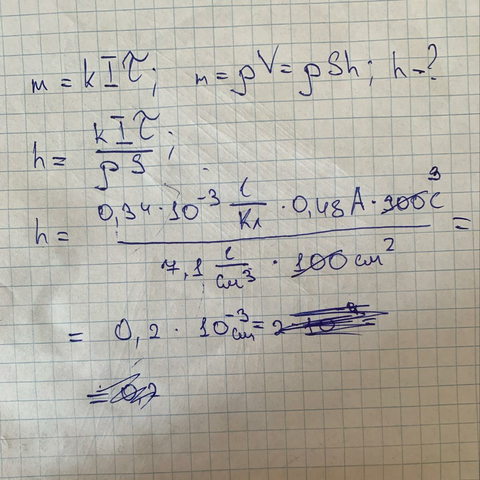 m = kIτ; m = ρV = ρSh; h - ?
h = kIτ / ρS;
h = 0,34 · 10⁻³ г/Кл · 0,48А · 900с 9 / 7,1 г/см³ · 100 см² =
= 0,2 · 10⁻³ см =